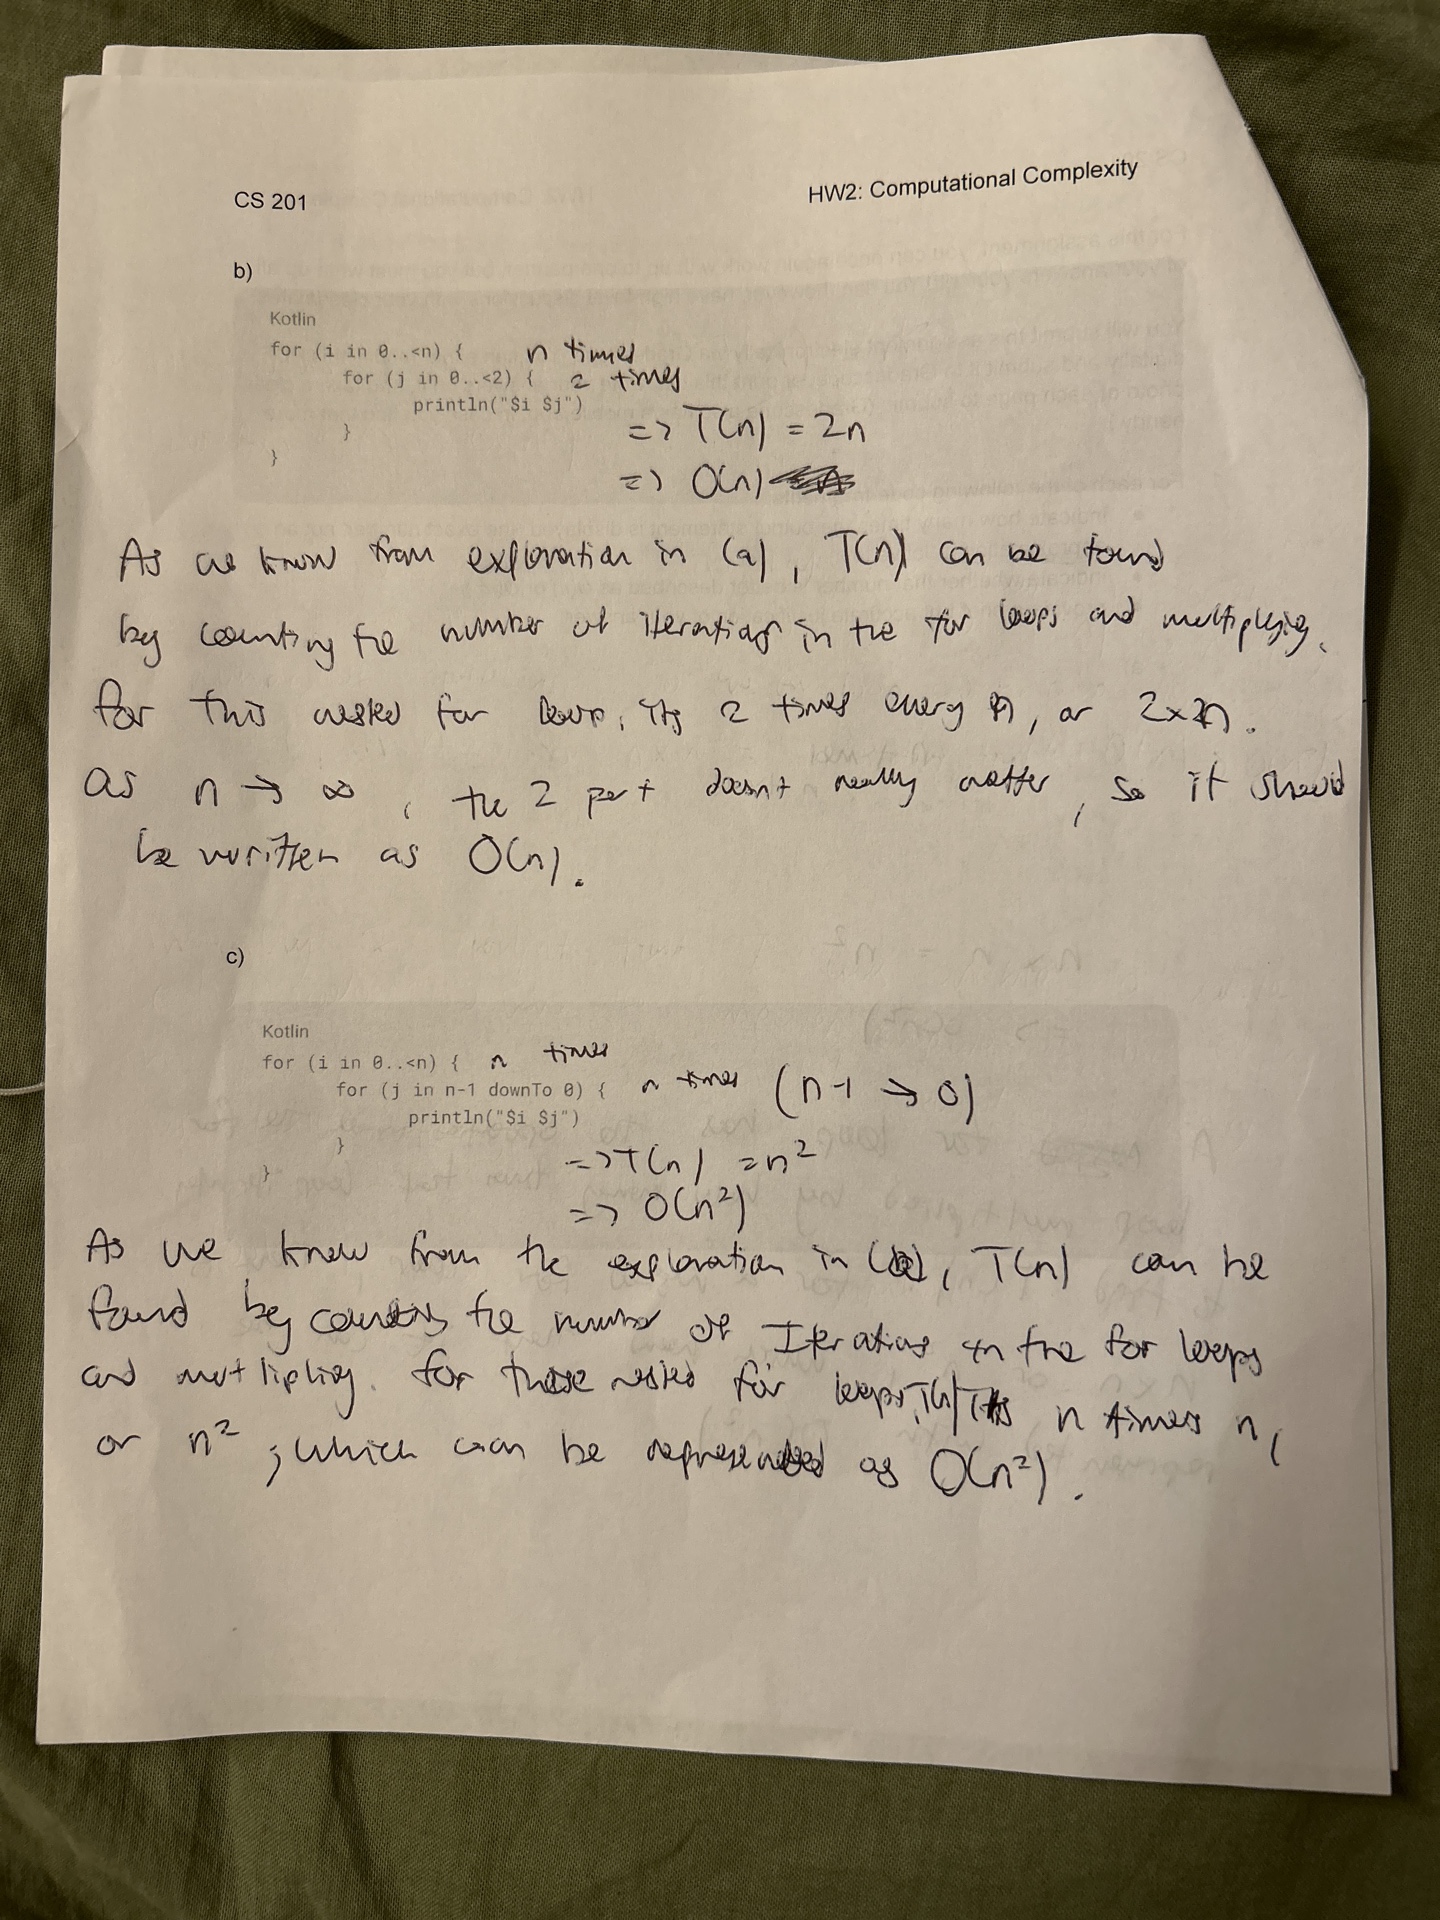 CS 201
HW2: Computational Complexity
b)
Kotlin
for (i in 0..<n) { n times
for (j in 0..<2) { 2 times
println("$i $j")
} => T(n) = 2n
}
=> O(n)
As we know from exploration in (a), T(n) can be found
by counting the number of iterations in the for loops and multiplying.
For this nested for loop, its 2 times every n, or 2x n.
as n → ∞, the 2 part doesn't really matter, so it should
be written as O(n).
c)
Kotlin
for (i in 0..<n) { n times
for (j in n-1 downTo 0) { n times (n-1 → 0)
println("$i $j")
}
=> T(n) = n²
}
=> O(n²)
As we know from the exploration in (b), T(n) can be
found by counting the number of Iterations in the for loops
and mutlipling. for these nested for loops, n times n,
or n²; which can be represented as O(n²).